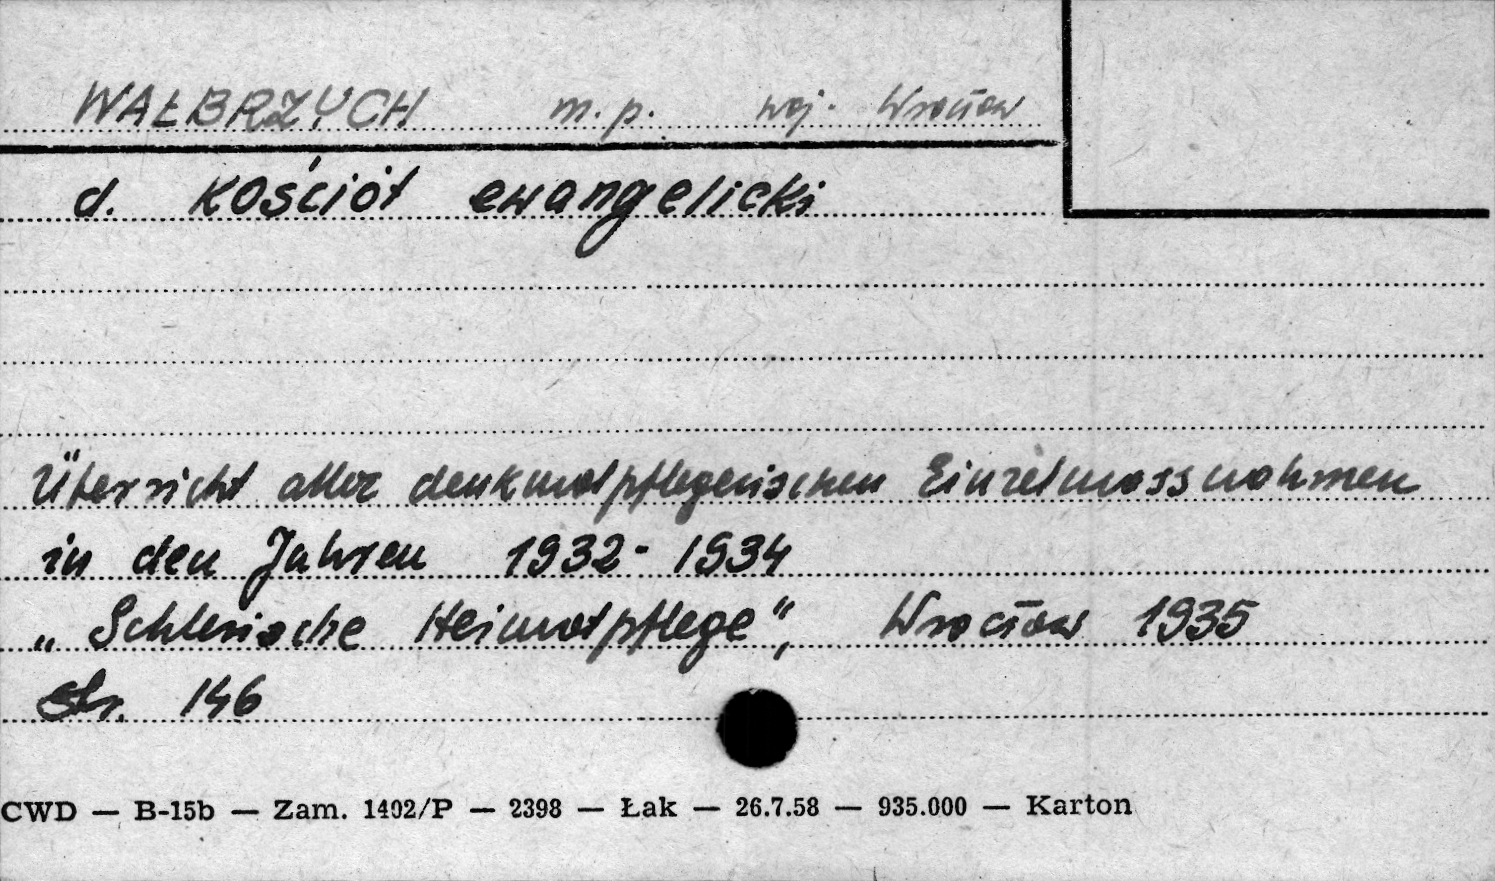 WAŁBRZYCH m.p. woj. Wrocław
d. kościół ewangelicki
Übersicht aller denkmalpflegerischen Einzelmassnahmen
in den Jahren 1932-1934
„Schlesische Heimatpflege", Wrocław 1935
str. 146
CWD — B-15b — Zam. 1402/P — 2398 — Łak — 26.7.58 — 935.000 — Karton